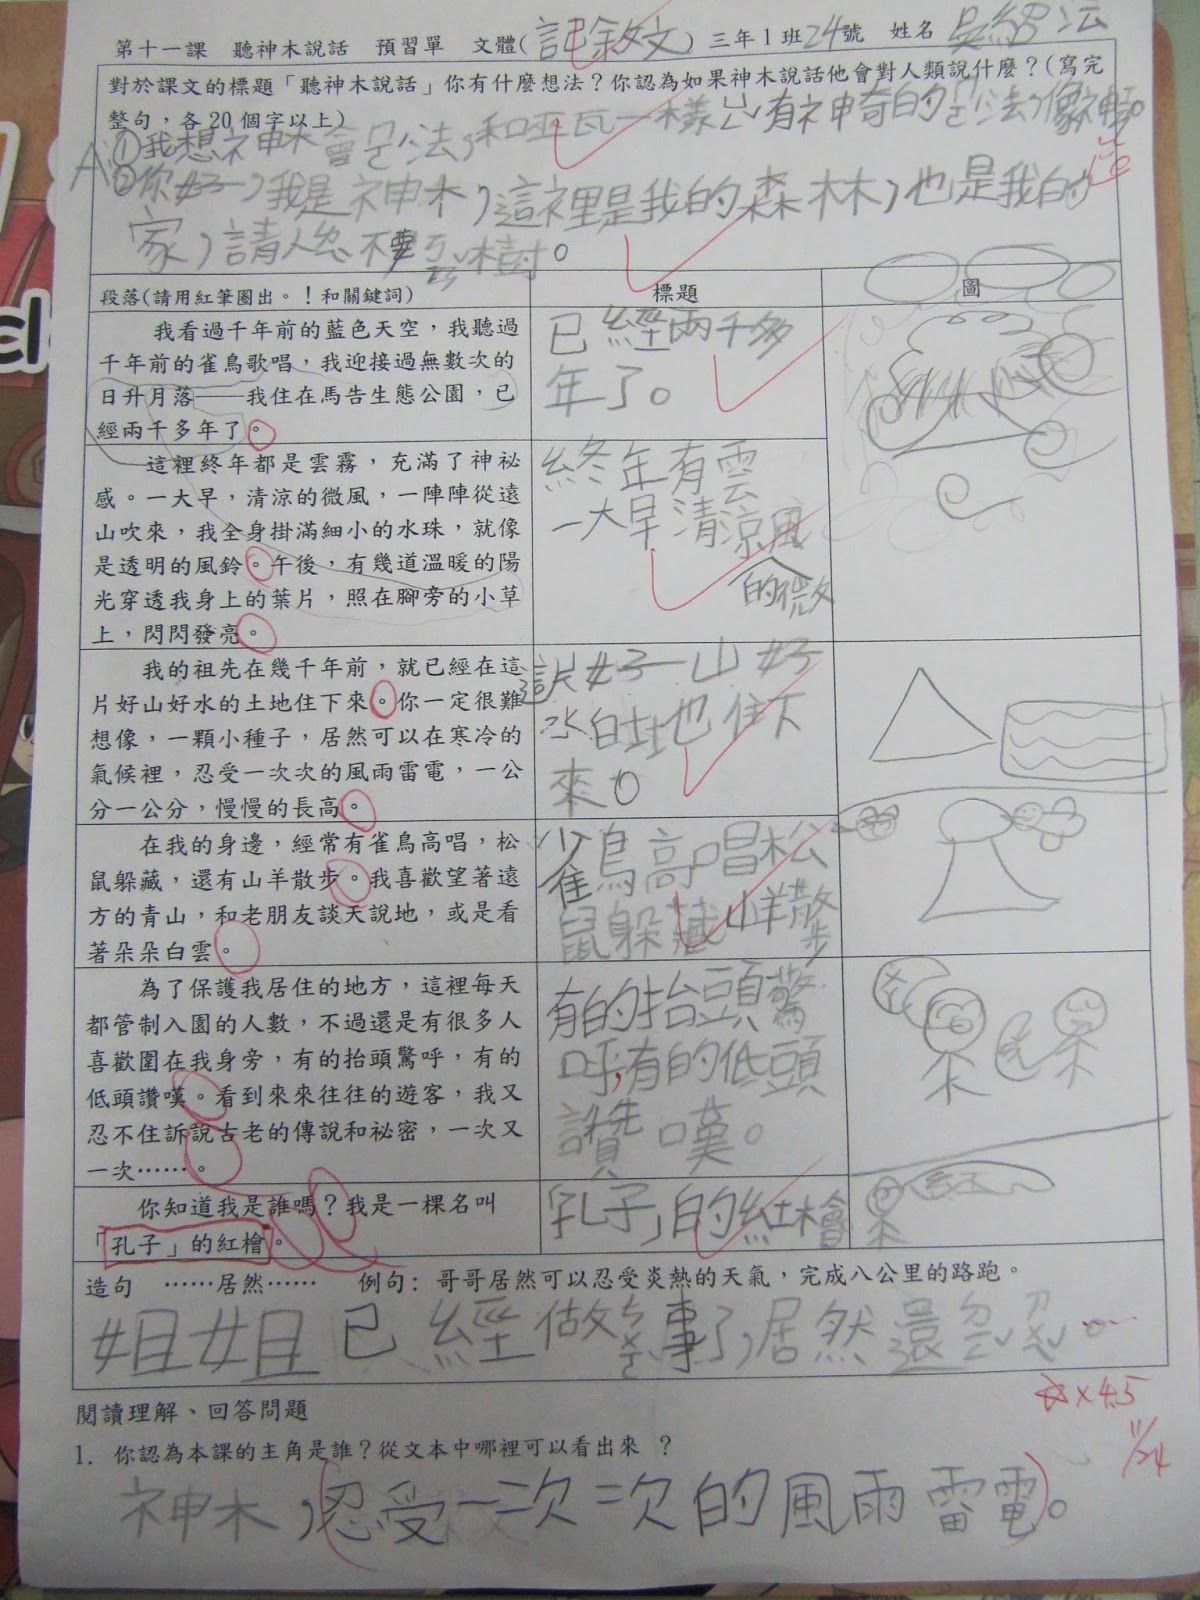 第十一課 聽神木說話 預習單 文體(記敘文) 三年1班24號 姓名
對於課文的標題「聽神木說話」你有什麼想法？你認為如果神木說話他會對人類說什麼？(寫完
整句，各20個字以上)
A①我想神木會ㄕˇ法，和
一樣
有神奇的
法，像神
②你好，我是神木，這裡是我的森林，也是我的
家，請人
不要ㄎㄢˇ樹。
段落(請用紅筆圈出。！和關鍵詞) 標題 圖
我看過千年前的藍色天空，我聽過
千年前的雀鳥歌唱，我迎接過無數次的
日升月落——我住在馬告生態公園，已
經兩千多年了。
已經兩千多
年了。
這裡終年都是雲霧，充滿了神祕
感。一大早，清涼的微風，一陣陣從遠
山吹來，我全身掛滿細小的水珠，就像
是透明的風鈴。午後，有幾道溫暖的陽
光穿透我身上的葉片，照在腳旁的小草
上，閃閃發亮。
終年有雲
一大早清涼風
的微
我的祖先在幾千年前，就已經在這
片好山好水的土地住下來。你一定很難
想像，一顆小種子，居然可以在寒冷的
氣候裡，忍受一次次的風雨雷電，一公
分一公分，慢慢的長高。
這片好山好
水的土地住下
來。
在我的身邊，經常有雀鳥高唱，松
鼠躲藏，還有山羊散步。我喜歡望著遠
方的青山，和老朋友談天說地，或是看
著朵朵白雲。
雀鳥高唱松
鼠躲藏山羊散步
為了保護我居住的地方，這裡每天
都管制入園的人數，不過還是有很多人
喜歡圍在我身旁，有的抬頭驚呼，有的
低頭讚嘆。看到來來往往的遊客，我又
忍不住訴說古老的傳說和祕密，一次又
一次……。
有的抬頭驚
呼，有的低頭
讚嘆。
你知道我是誰嗎？我是一棵名叫
「孔子」的紅檜。
「孔子」的紅檜
造句 ……居然…… 例句：哥哥居然可以忍受炎熱的天氣，完成八公里的路跑。
姐姐已經做
事了，居然還
☆×45
11/24
閱讀理解、回答問題
1. 你認為本課的主角是誰？從文本中哪裡可以看出來 ？
神木，忍受一次一次的風雨雷電。